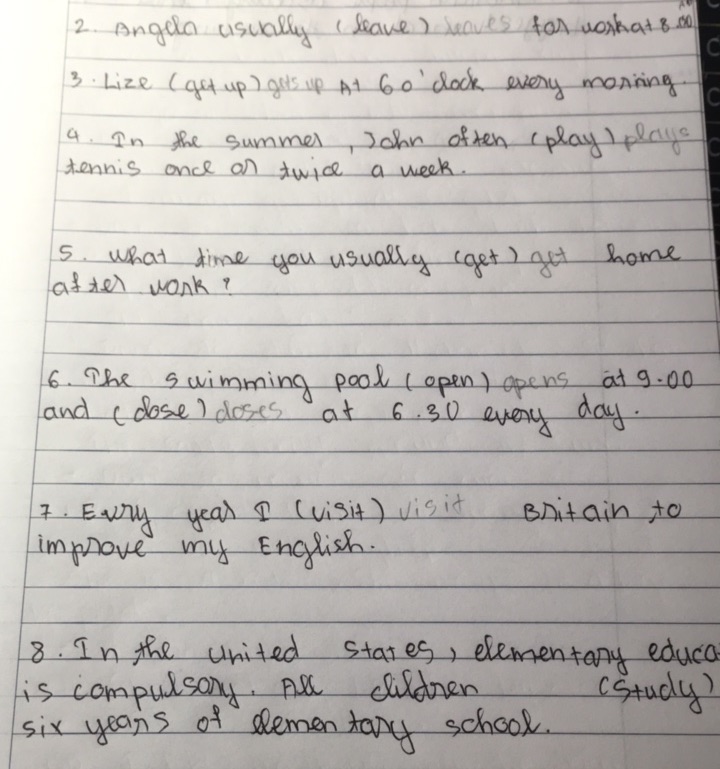 2. Angela usually (leave) leaves for work at 8.00
3. Lize (get up) gets up At 6 o'clock every morning.
4. In the summer, John often (play) plays
tennis once or twice a week.
5. What time you usually (get) get home
after work?
6. The swimming pool (open) opens at 9.00
and (close) closes at 6.30 every day.
7. Every year I (visit) visit Britain to
improve my English.
8. In the united states, elementary educa
is compulsory. All children (study)
six years of elementary school.